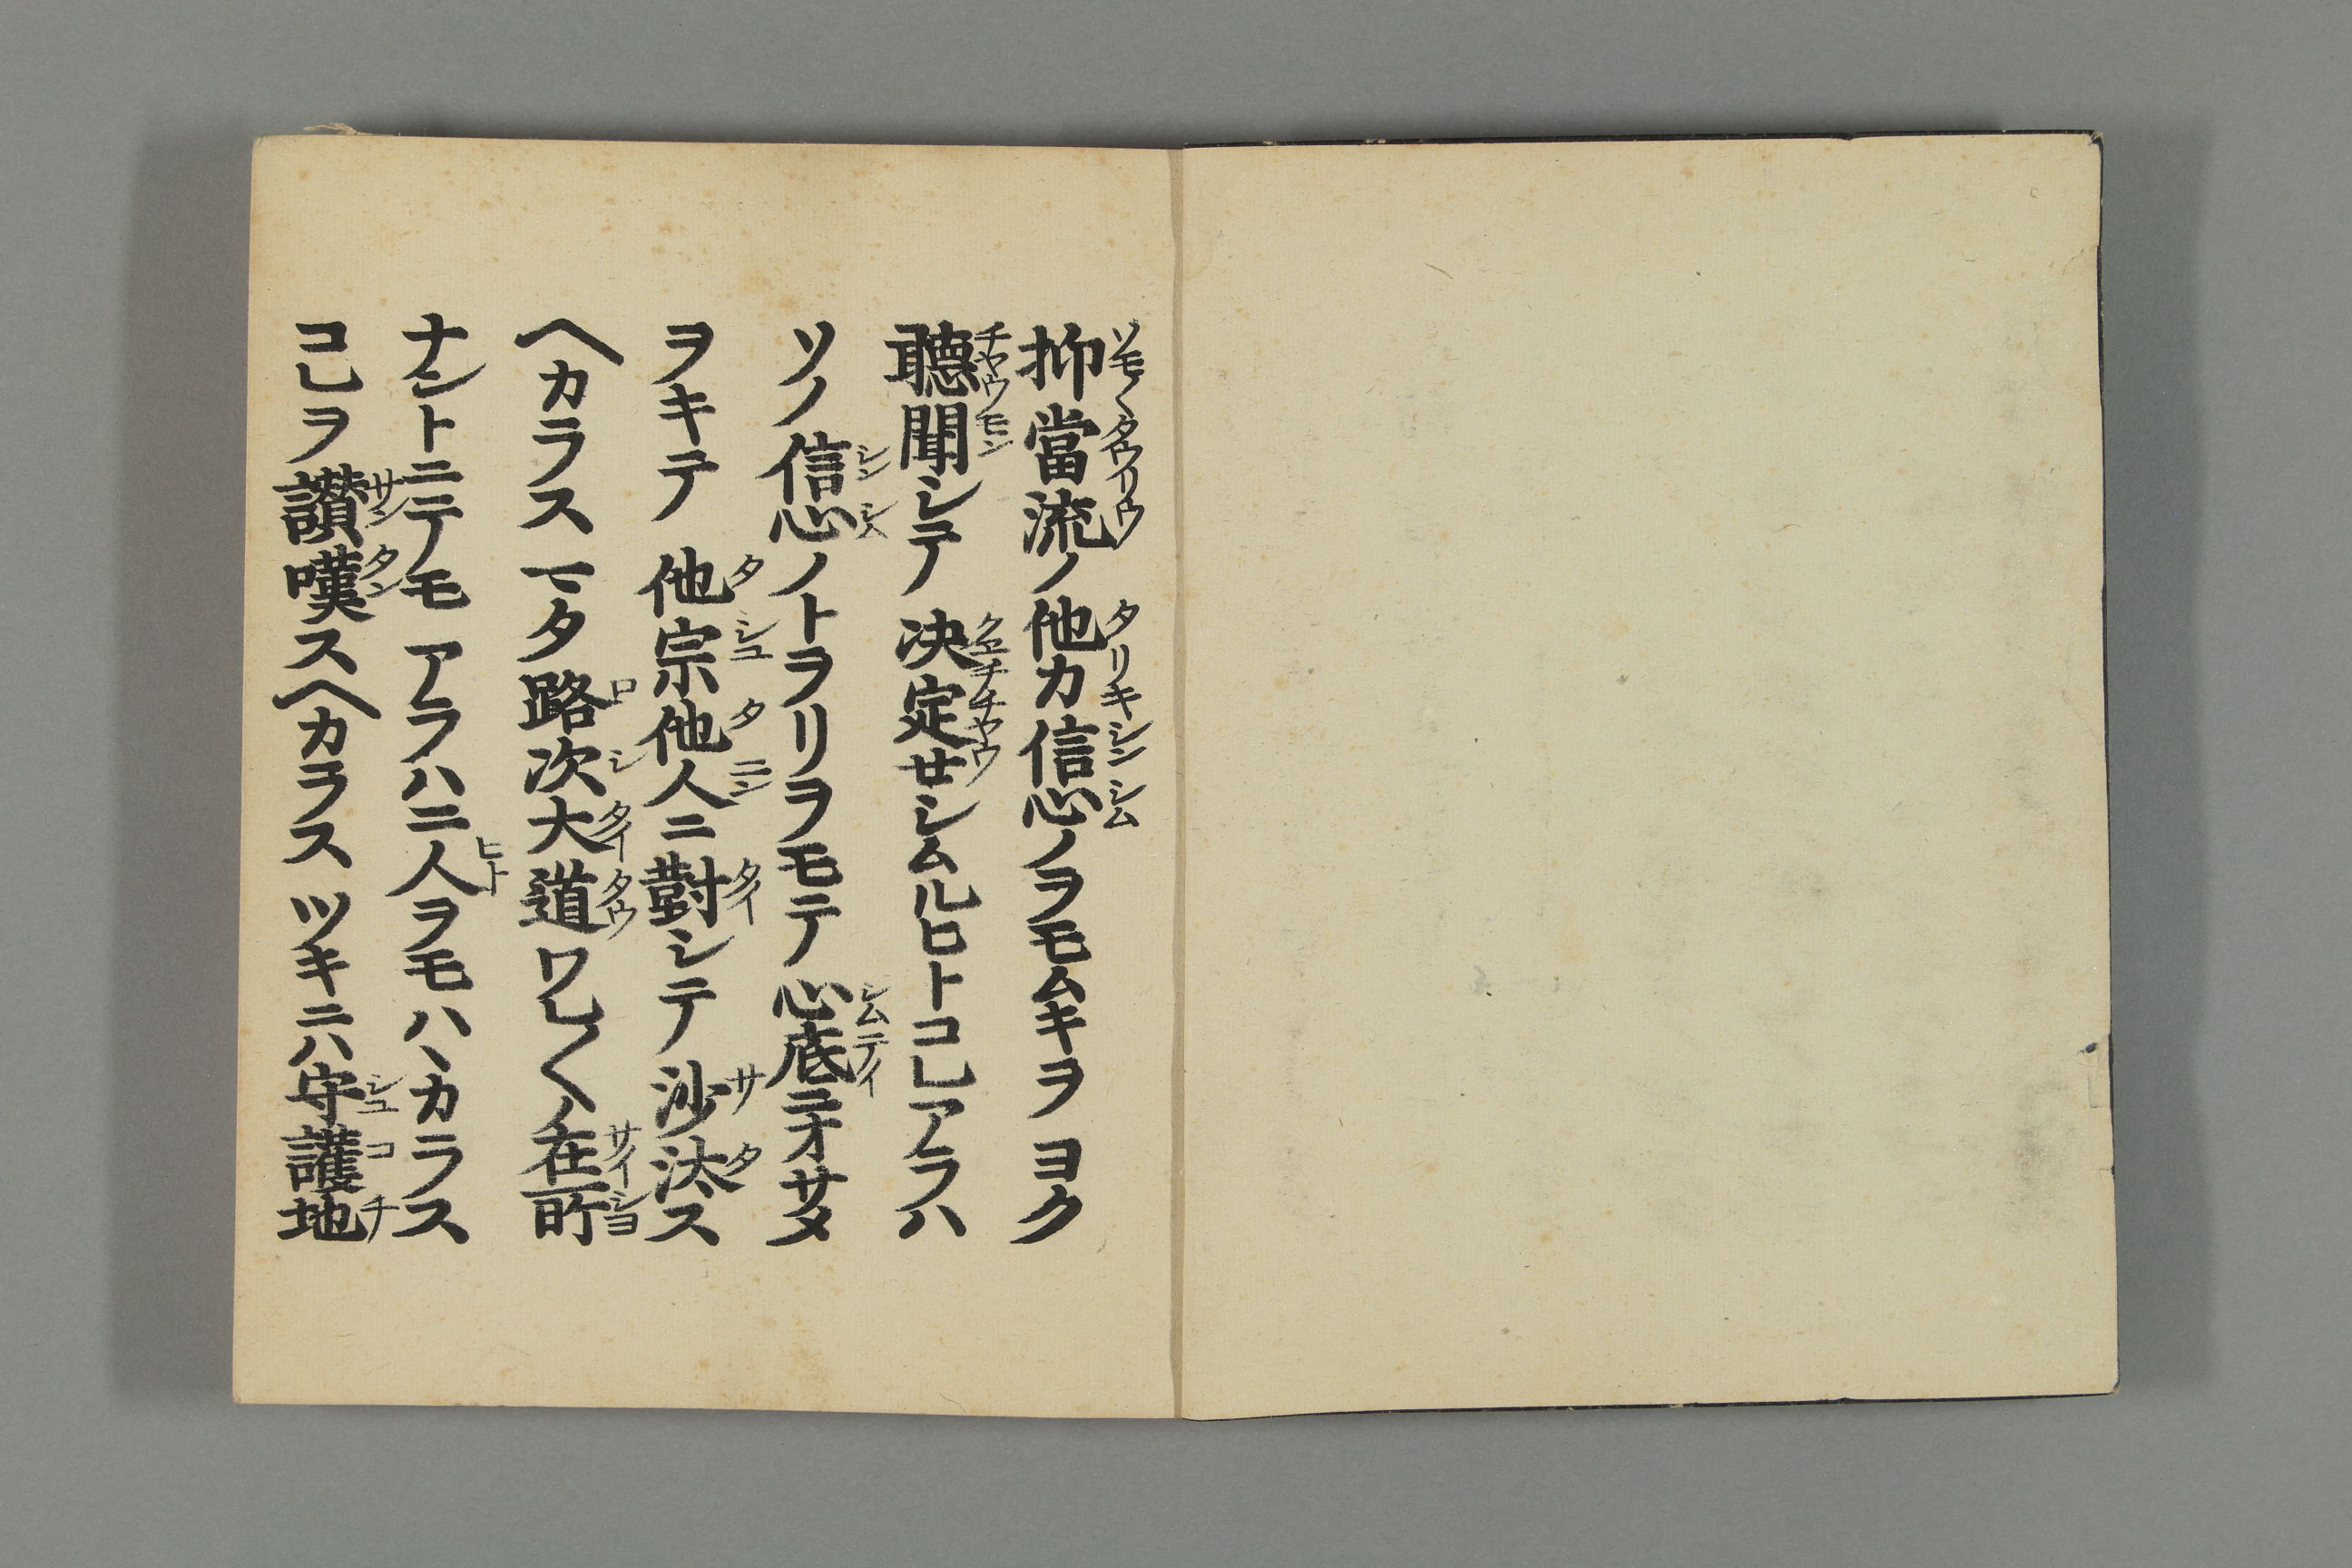 抑當流ノ他力信心ノヲモムキヲヨク
聽聞シテ决定せシムルヒトコレアラハ
ソノ信心ノトヲリヲモテ心底ニオサメ
ヲキテ他宗他人ニ對シテ沙汰ス
ヘカラスマタ路次大道ワレ〱ノ在所
ナントニテモアラハニ人ヲモハヽカラス
コレヲ讃嘆スヘカラスツキニハ守護地